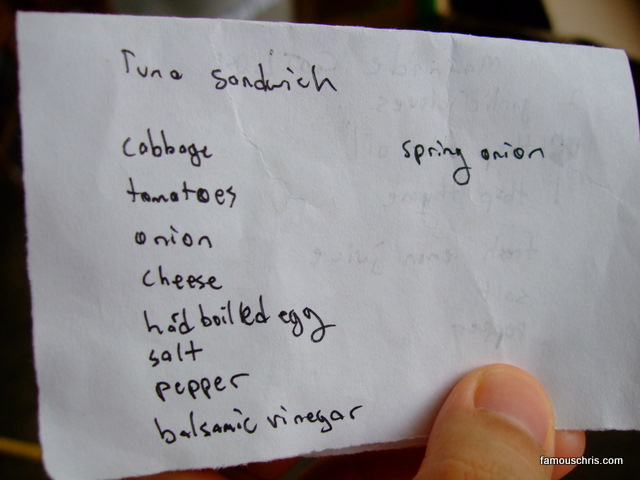 Tuna sandwich
cabbage
tomatoes
onion
cheese
hard boiled egg
salt
pepper
balsamic vinegar
spring onion
famouschris.com